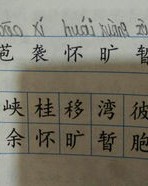 芭袭怀旷暂
峡桂移湾彼
余怀旷暂胞